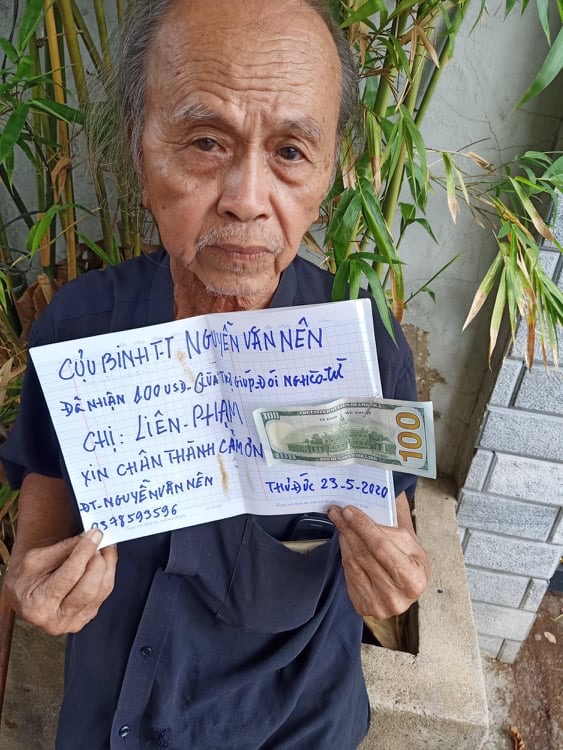 CỰU BINH T.T NGUYỄN VĂN NÊN
ĐÃ NHẬN 100 USD - QUÀ TRỢ GIÚP ĐÓI NGHÈO TỪ
CHỊ: LIÊN - PHẠM
XIN CHÂN THÀNH CẢM ƠN
ĐT - NGUYỄN VĂN NÊN
0378593596
THỦ ĐỨC 23-5-2020
100
100